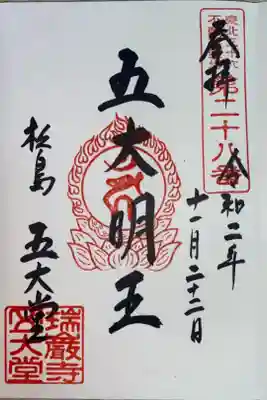 奉拝
第二十八番
令和二年
十一月二十二日
五大明王
松島
五大堂
瑞巌寺
五大堂